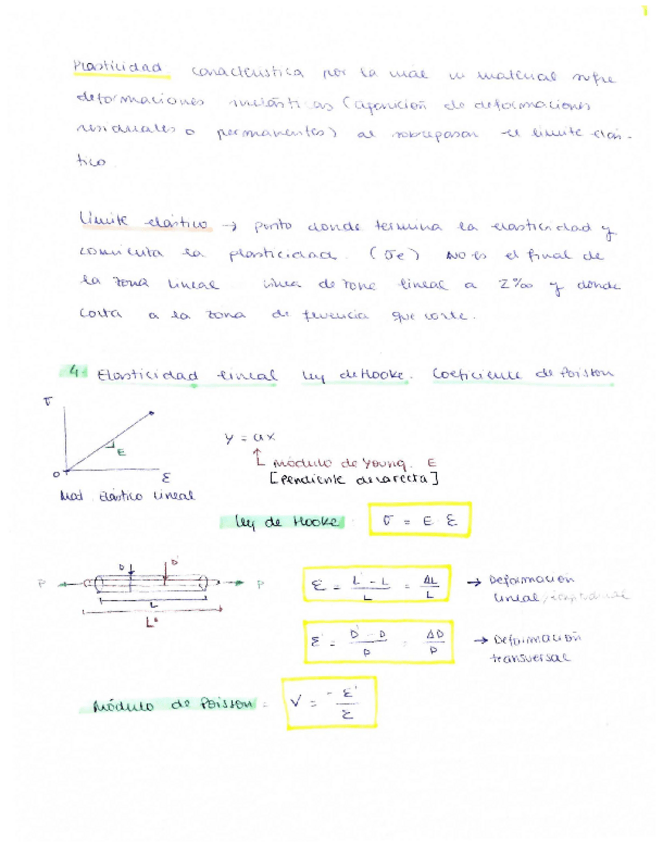 1
Plasticidad característica por la cual un material sufre
deformaciones inelásticas (aparición de deformaciones
residuales o permanentes) al sobrepasar el límite elás-
tico.
Límite elástico → punto donde termina la elasticidad y
comienza la plasticidad. (σe) NO es el final de
la zona lineal línea de zona lineal a 2‰ y donde
corta a la zona de fluencia que corte.
4. Elasticidad lineal ley de Hooke. Coeficiente de Poisson
σ
E
0
ε
Mat. elástico lineal
y = ax
módulo de Young. E
[Pendiente de la recta]
ley de Hooke: σ = E ε
P D D' P
L
L'
ε = L' - L / L = ΔL / L → Deformación
lineal/longitudinal
ε' = D' - D / D = ΔD / D → Deformación
transversal
Módulo de Poisson = ν = -ε' / ε